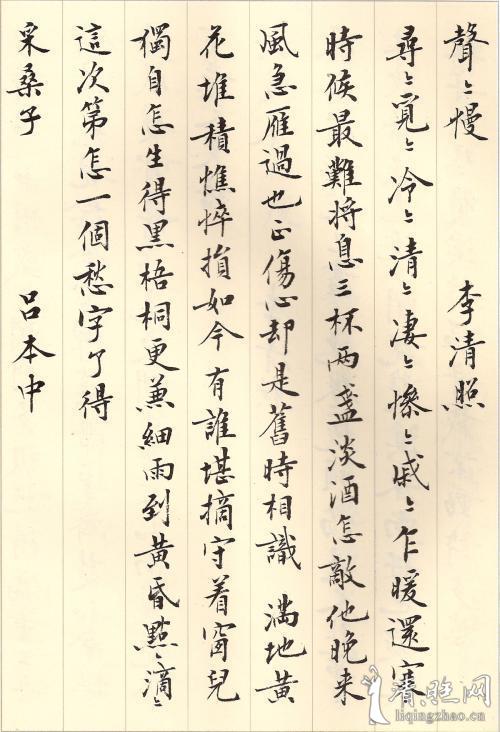 聲〻慢 李清照
尋〻覓〻冷〻清〻凄〻慘〻戚〻乍暖還寒
時候最難將息三杯兩盞淡酒怎敵他晚来
風急雁過也正傷心却是舊時相識 滿地黄
花堆積憔悴損如今有誰堪摘守着窗兒
獨自怎生得黑梧桐更蒹細雨到黄昏點〻滴〻
這次第怎一個愁字了得
采桑子 吕本中
清照网
liqingzhao.cn